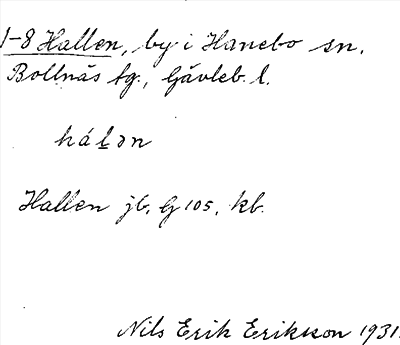 1-8 Hallen, by i Hanebo sn.
Bollnäs tg., Gävleb. l.
háḻən
Hallen jb. G 105, kb.
Nils Erik Eriksson 1931.